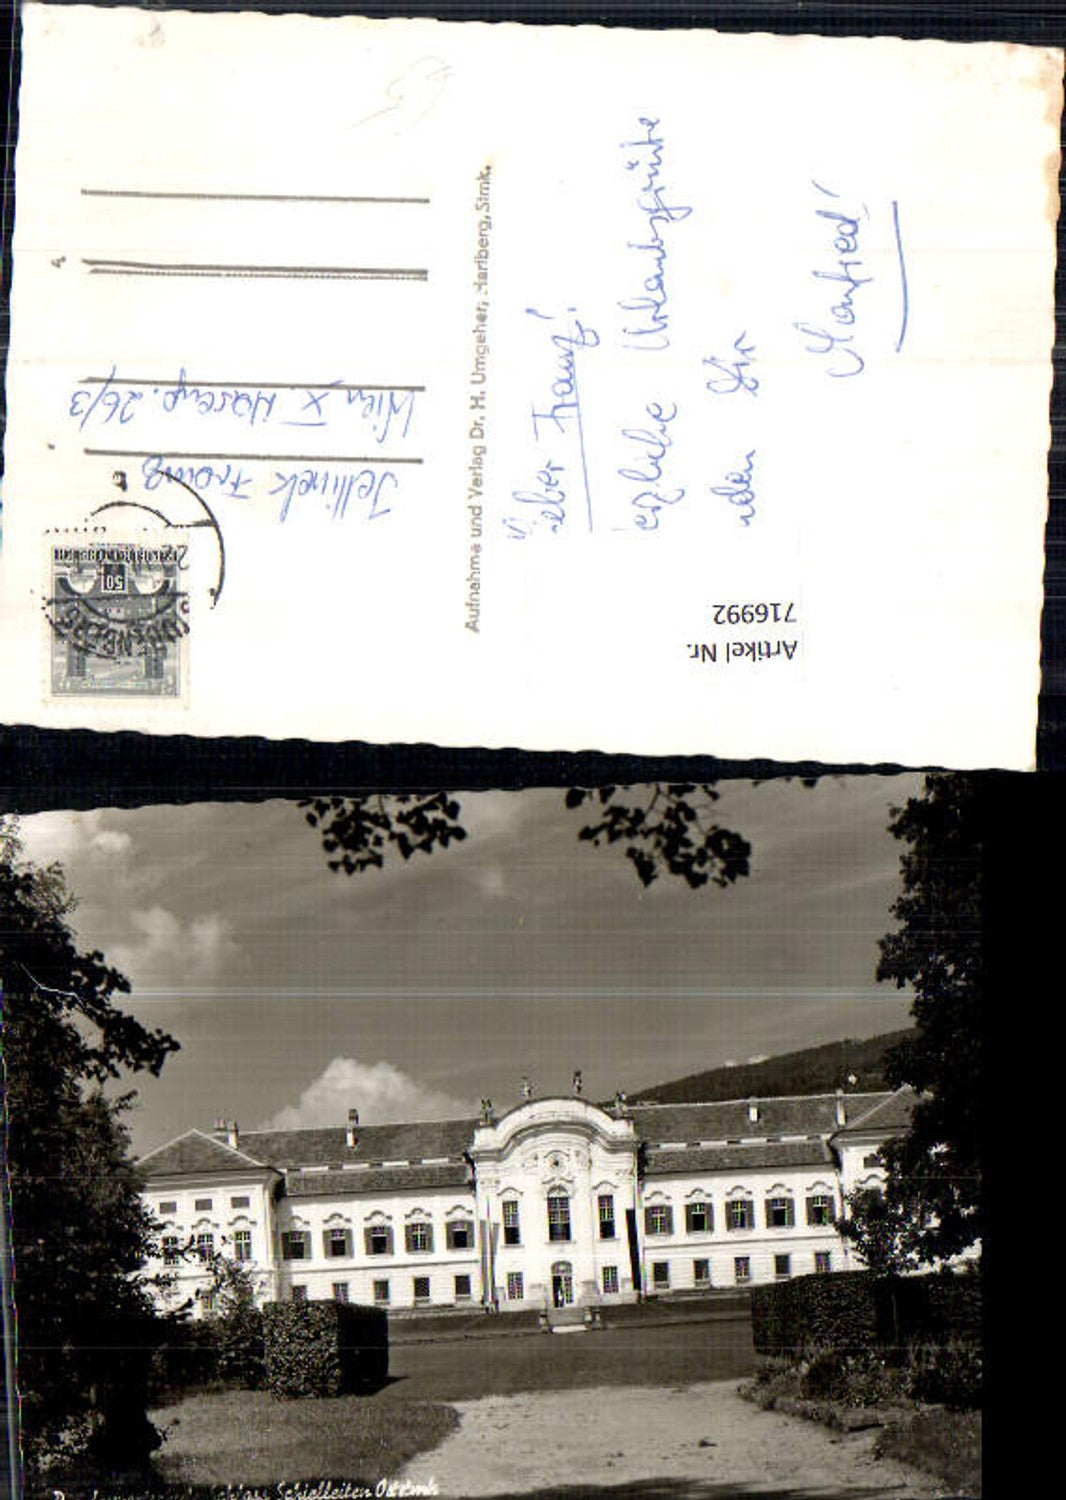 Lieber Franz!
Herzliche Urlaubsgrüße
senden Dir
Manfred!
Aufnahme und Verlag Dr. H. Umgeher, Hartberg, Stmk.
Jellinek Franz
Wien X Haseng. 26/3
50
Artikel Nr.
716992
Schielleiten Oststmk